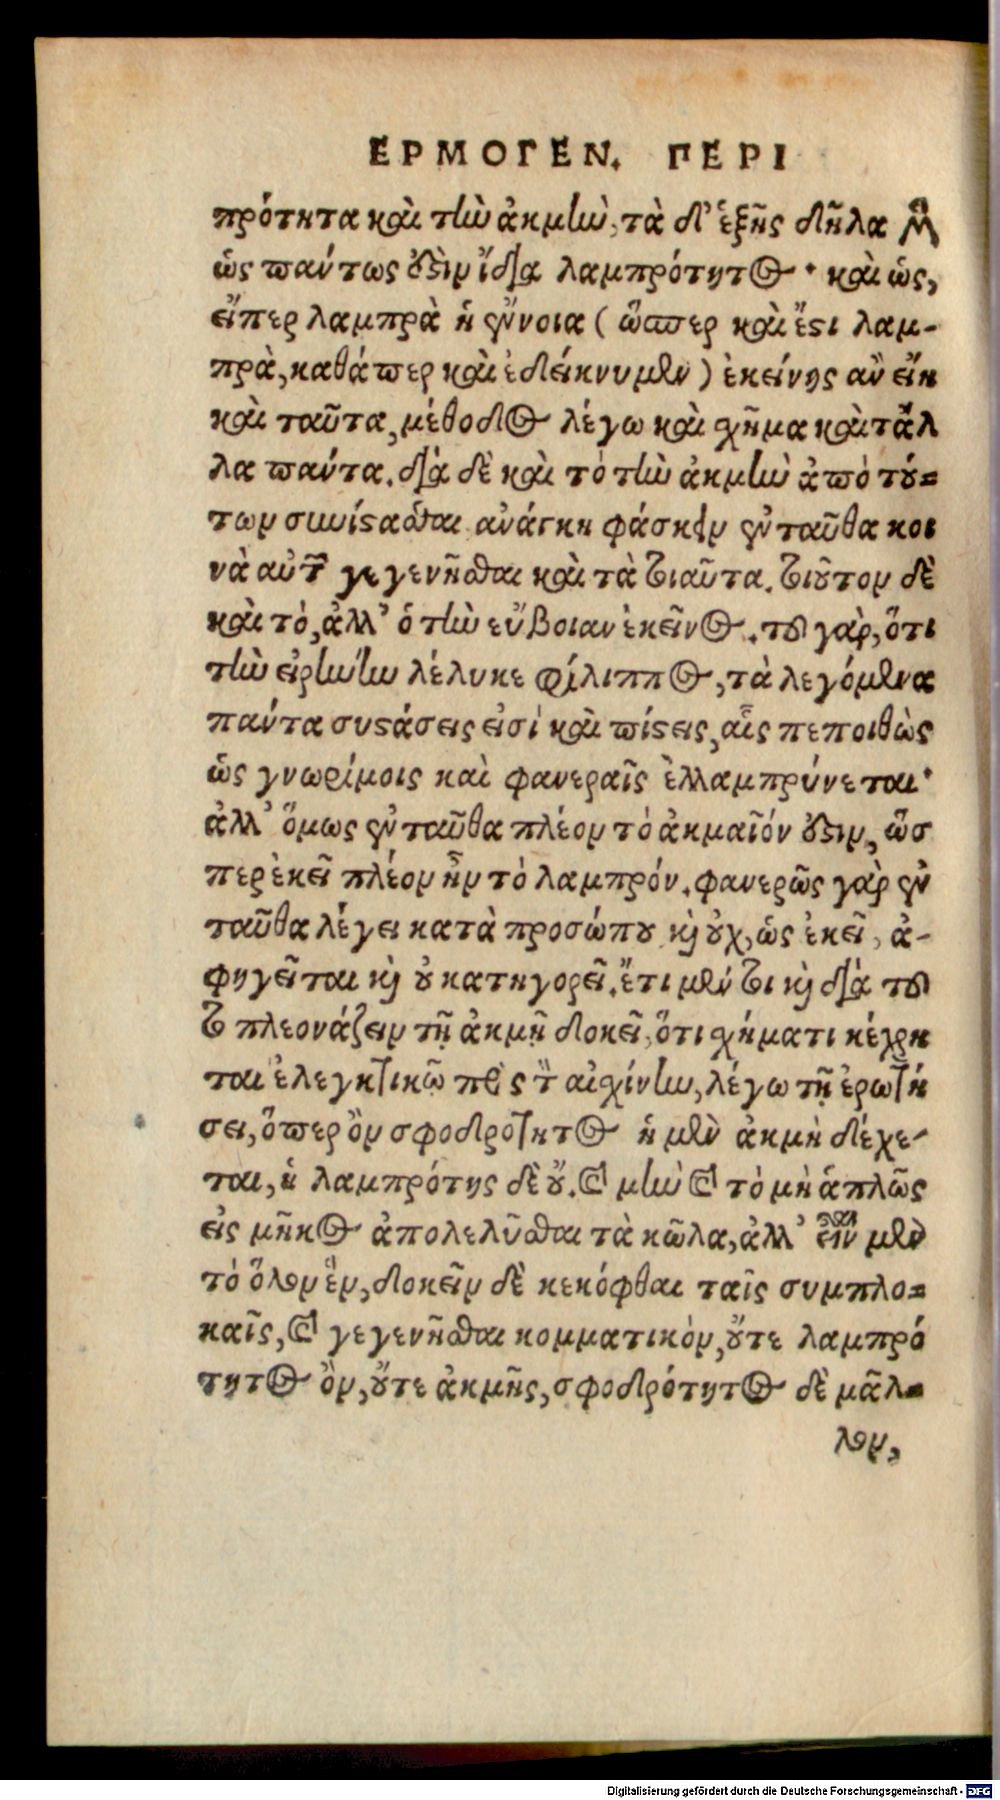 ΕΡΜΟΓΕΝ. ΠΕΡΙ
πρότητα καὶ τὴν ἀκμὴν, τὰ δ' ἑξῆς δῆλα
ὡς πάντως ἐστὶν ἴδια λαμπρότητος· καὶ ὡς,
εἴπερ λαμπρὰ ἡ ἔννοια (ὥσπερ καὶ ἔστι λαμ-
πρὰ, καθάπερ καὶ ἐδείκνυμεν) ἐκείνης ἂν εἴη
καὶ ταῦτα, μέθοδος λέγω καὶ σχῆμα καὶ τἄλ
λα πάντα. διὰ δὲ καὶ τὸ τὴν ἀκμὴν ἀπὸ τού=
των συνίστασθαι ἀνάγκη φάσκειν ἐνταῦθα κοι
νὰ αὐτῶν γεγενῆσθαι καὶ τὰ τοιαῦτα. τοιοῦτον δὲ
καὶ τὸ, ἀλλ' ὁ τὴν εὔβοιαν ἐκεῖνος. τοῦ γὰρ, ὅτι
τὴν εἰρήνην λέλυκε φίλιππος, τὰ λεγόμενα
πάντα συστάσεις εἰσὶ καὶ πίστεις, αἷς πεποιθὼς
ὡς γνωρίμοις καὶ φανεραῖς ἐλλαμπρύνεται·
ἀλλ' ὅμως ἐνταῦθα πλέον τὸ ἀκμαῖόν ἐστιν, ὥσ
περ ἐκεῖ πλέον ἦν τὸ λαμπρόν. φανερῶς γὰρ ἐν
ταῦθα λέγει κατὰ προσώπου καὶ οὐχ, ὡς ἐκεῖ, ἀ-
φηγεῖται καὶ οὐ κατηγορεῖ. ἔτι μέν τοι καὶ διὰ τοῦ
το πλεονάζειν τῇ ἀκμῇ δοκεῖ, ὅτι σχήματι κέχρη
ται ἐλεγκτικῷ πρὸς τὸν αἰσχίνην, λέγω τῇ ἐρωτή
σει, ὅπερ ὂν σφοδρότητος ἡ μὲν ἀκμὴ δέχε-
ται, ἡ λαμπρότης δὲ οὔ. καὶ μὴν καὶ τὸ μὴ ἁπλῶς
εἰς μῆκος ἀπολελῦσθαι τὰ κῶλα, ἀλλ' εἶναι μὲν
τὸ ὅλον ἓν, δοκεῖν δὲ κεκόφθαι ταῖς συμπλο=
καῖς, καὶ γεγενῆσθαι κομματικὸν, οὔτε λαμπρό
τητος ὂν, οὔτε ἀκμῆς, σφοδρότητος δὲ μᾶλ=
λον,
Digitalisierung gefördert durch die Deutsche Forschungsgemeinschaft - DFG